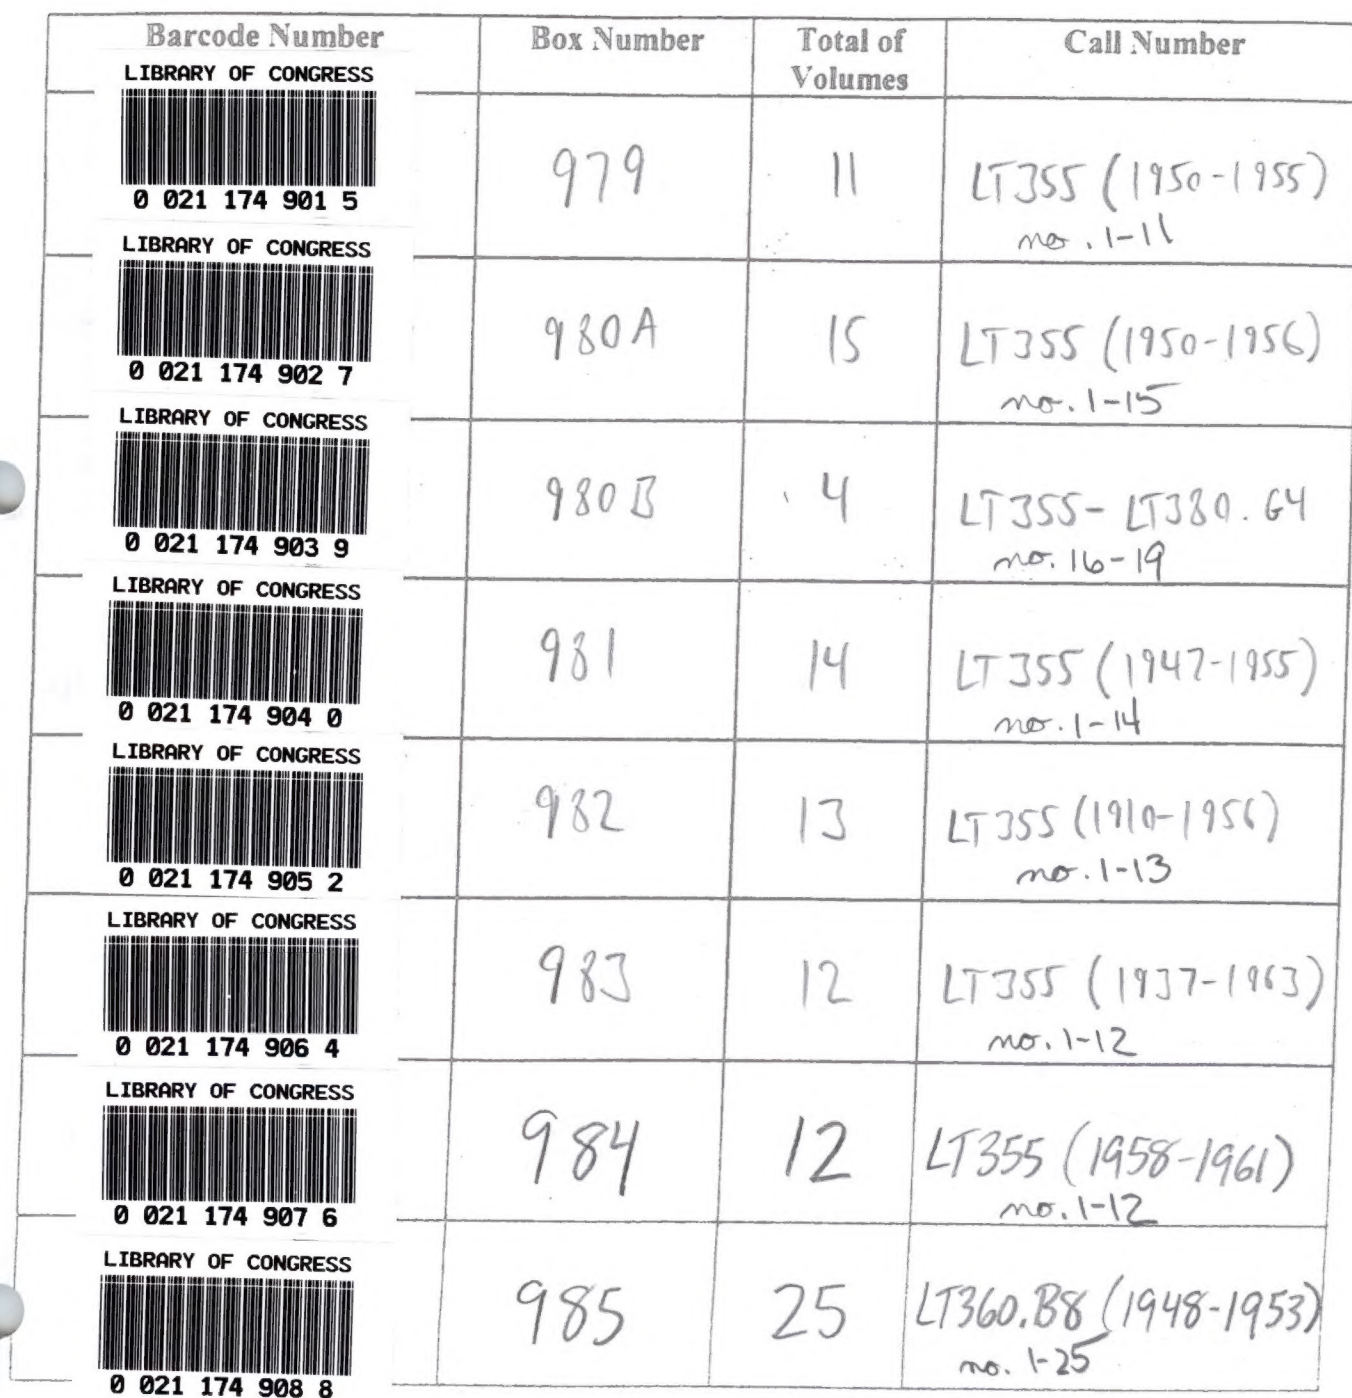 Barcode Number Box Number Total of Volumes Call Number
LIBRARY OF CONGRESS
0 021 174 901 5
979 11 LT355 (1950-1955)
no. 1-11
LIBRARY OF CONGRESS
0 021 174 902 7
980A 15 LT355 (1950-1956)
no. 1-15
LIBRARY OF CONGRESS
0 021 174 903 9
980B 4 LT355- LT380.G4
no. 16-19
LIBRARY OF CONGRESS
0 021 174 904 0
981 14 LT355 (1947-1955)
no. 1-14
LIBRARY OF CONGRESS
0 021 174 905 2
982 13 LT355 (1910-1956)
no. 1-13
LIBRARY OF CONGRESS
0 021 174 906 4
983 12 LT355 (1937-1963)
no. 1-12
LIBRARY OF CONGRESS
0 021 174 907 6
984 12 LT355 (1958-1961)
no. 1-12
LIBRARY OF CONGRESS
0 021 174 908 8
985 25 LT360.B8 (1948-1953)
no. 1-25